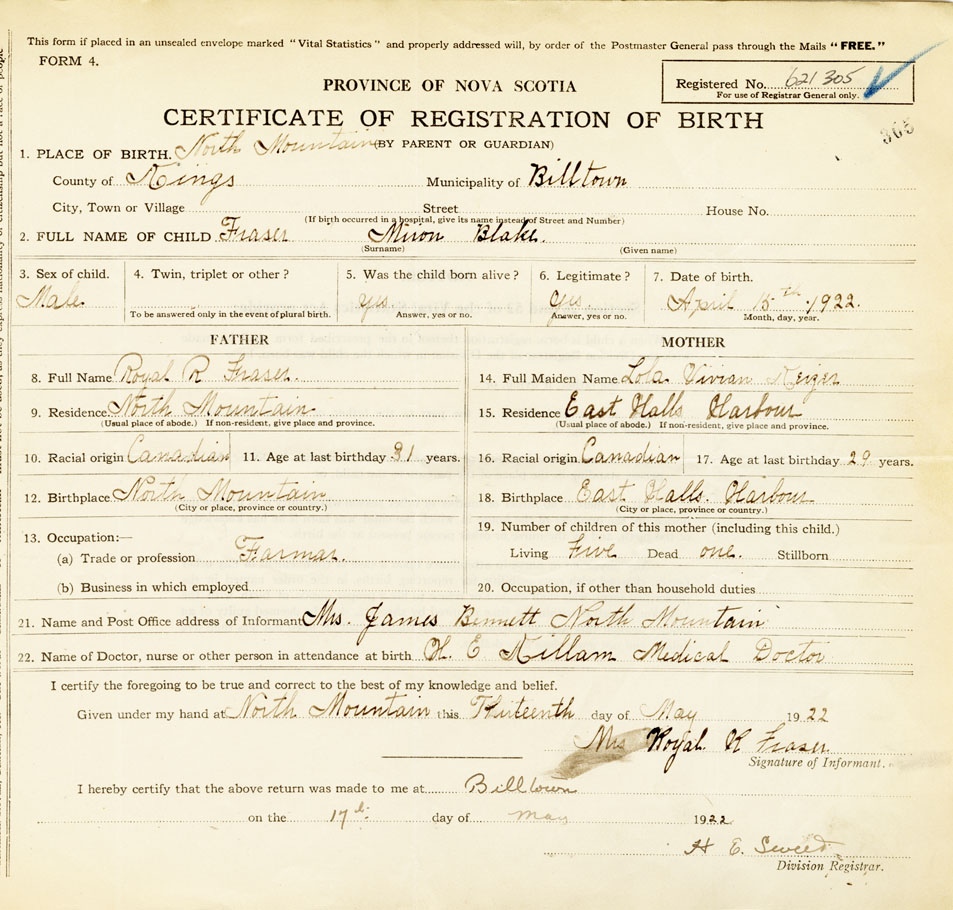 This form if placed in an unsealed envelope marked "Vital Statistics" and properly addressed will, by order of the Postmaster General pass through the Mails "FREE."
FORM 4.
Registered No. 621 305
For use of Registrar General only.
PROVINCE OF NOVA SCOTIA
CERTIFICATE OF REGISTRATION OF BIRTH
305
1. PLACE OF BIRTH. North Mountain (BY PARENT OR GUARDIAN)
County of Kings Municipality of Billtown
City, Town or Village Street House No.
(If birth occurred in a hospital, give its name instead of Street and Number)
2. FULL NAME OF CHILD Fraser Miron Blake.
(Surname) (Given name)
3. Sex of child. 4. Twin, triplet or other? 5. Was the child born alive? 6. Legitimate? 7. Date of birth.
Male. yes yes. April 15th 1922.
To be answered only in the event of plural birth. Answer, yes or no. Answer, yes or no. Month, day, year.
FATHER MOTHER
8. Full Name Royal R Fraser. 14. Full Maiden Name Lola Vivian Keizer
9. Residence. North Mountain 15. Residence East Halls Harbour
(Usual place of abode.) If non-resident, give place and province. (Usual place of abode.) If non-resident, give place and province.
10. Racial origin Canadian 11. Age at last birthday 31 years. 16. Racial origin Canadian 17. Age at last birthday 29 years.
12. Birthplace North Mountain 18. Birthplace East Halls. Harbour
(City or place, province or country.) (City or place, province or country.)
13. Occupation:— 19. Number of children of this mother (including this child.)
(a) Trade or profession Farmar. Living Five Dead one. Stillborn
(b) Business in which employed 20. Occupation, if other than household duties
21. Name and Post Office address of Informant Mrs. James Bennett North Mountain
22. Name of Doctor, nurse or other person in attendance at birth H. E Killam Medical Doctor
I certify the foregoing to be true and correct to the best of my knowledge and belief.
Given under my hand at North Mountain this Thirteenth day of May 1922
Mrs Royal. R Fraser
Signature of Informant.
I hereby certify that the above return was made to me at Billtown
on the 17th day of May 1922
H E.
Division Registrar.